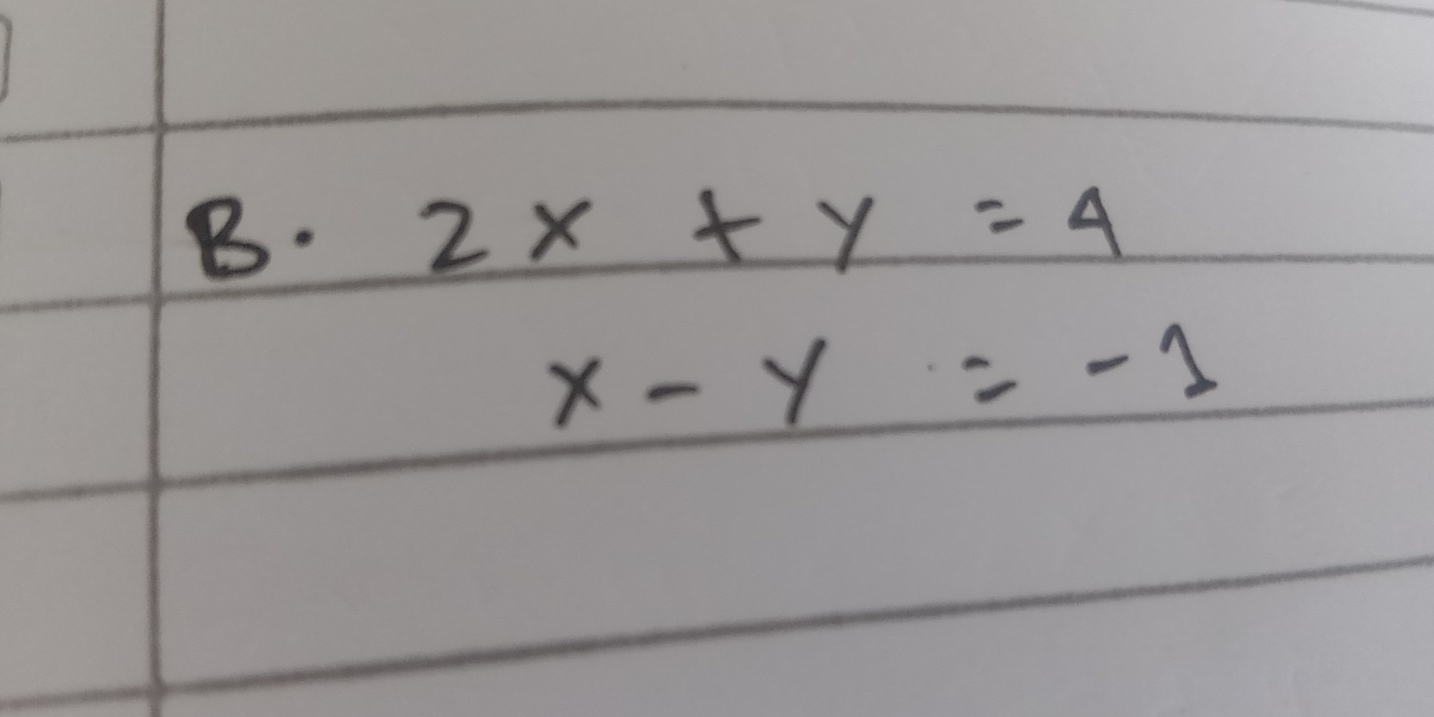 B. 2x + y = 4
x - y = -1